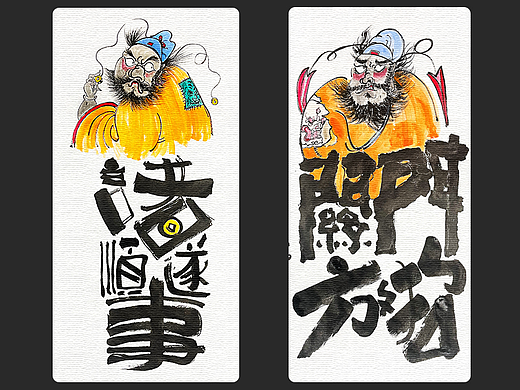 诸
順遂
事
關門
放狗